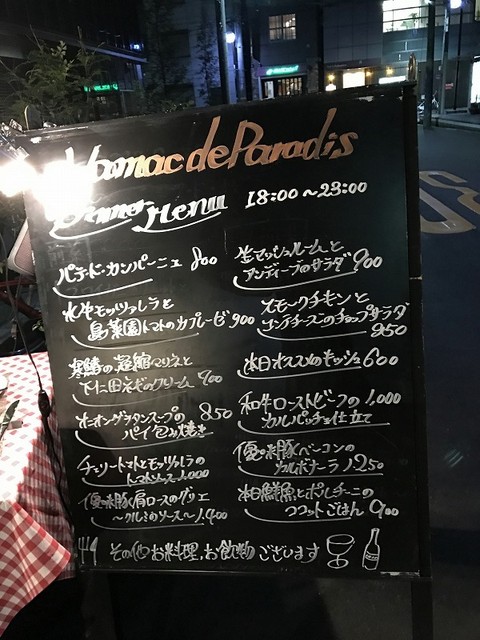 Hamac de Paradis
Dinner Menu 18:00〜23:00
パテ・ド・カンパーニュ 800
水牛モッツァレラと
島菜園トマトのカプレーゼ 900
寒鰆の マリネと
下仁田ネギのクリーム 900
オニオングラタンスープの 850
パイ包み焼き
チェリートマトとモッツァレラの
トマトソース 1,000
優味豚肩ロースのグリエ
〜クルミのソース〜 1,400
生マッシュルームと
アンディーブのサラダ 900
スモークチキンと
コンテチーズのチョップサラダ
850
本日オススメのキッシュ 600
和牛ローストビーフの 1,000
カルパッチョ仕立て
優味豚ベーコンの
カルボナーラ 1,250
本日鮮魚とポルチーニの
ココットごはん 900
その他お料理、お飲物ございます